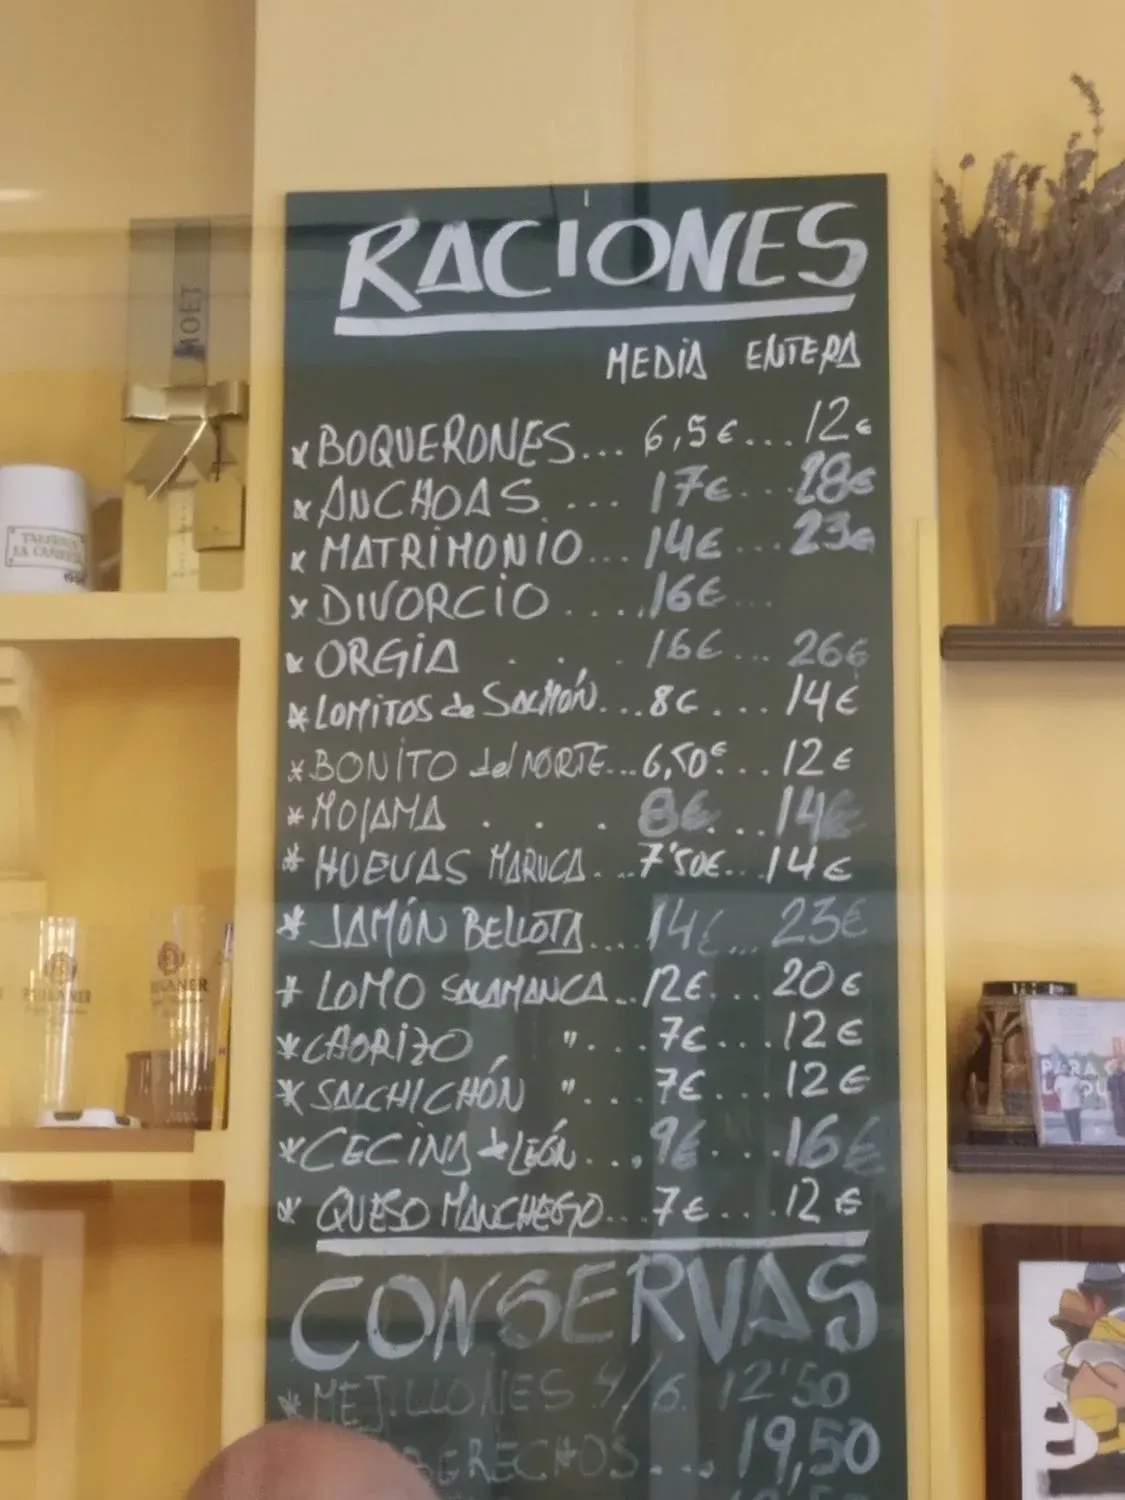 RACIONES
MEDIA ENTERA
* BOQUERONES... 6,5€... 12€
* ANCHOAS.... 17€... 28€
* MATRIMONIO... 14€... 23€
* DIVORCIO..... 16€...
* ORGIA . . . 16€... 26€
* LOMITOS de SALMÓN... 8€.... 14€
* BONITO del NORTE... 6,50€... 12€
* MOJAMA . . . 8€.... 14€
* HUEVAS MARUCA.... 7'50€... 14€
* JAMÓN BELLOTA.... 14€... 23€
* LOMO SALAMANCA.. 12€... 20€
* CHORIZO "... 7€... 12€
* SALCHICHÓN "... 7€... 12€
* CECINA de LEÓN... 9€.... 16€
* QUESO MANCHEGO... 7€.... 12€
CONSERVAS
* MEJILLONES 4/6 12'50
BERECHOS... 19,50
MOET
TABERNA
LA CAÑERÍA
PAULANER
PARA